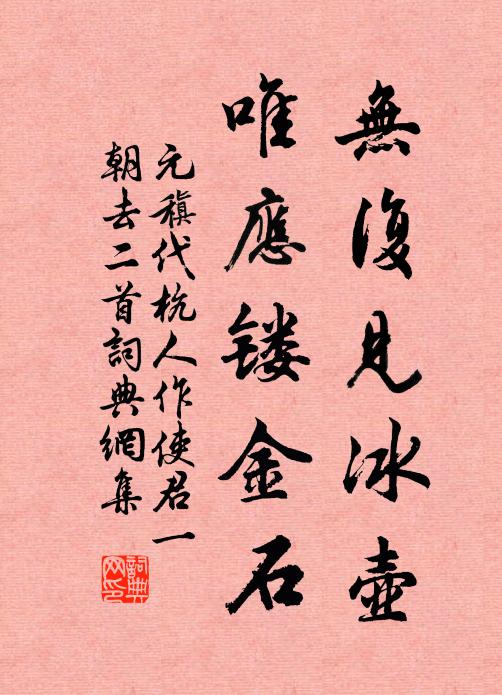 無復見冰壺
唯應镂金石
元稹代杭人作使君一
朝去二首詞典網集
詞典网印